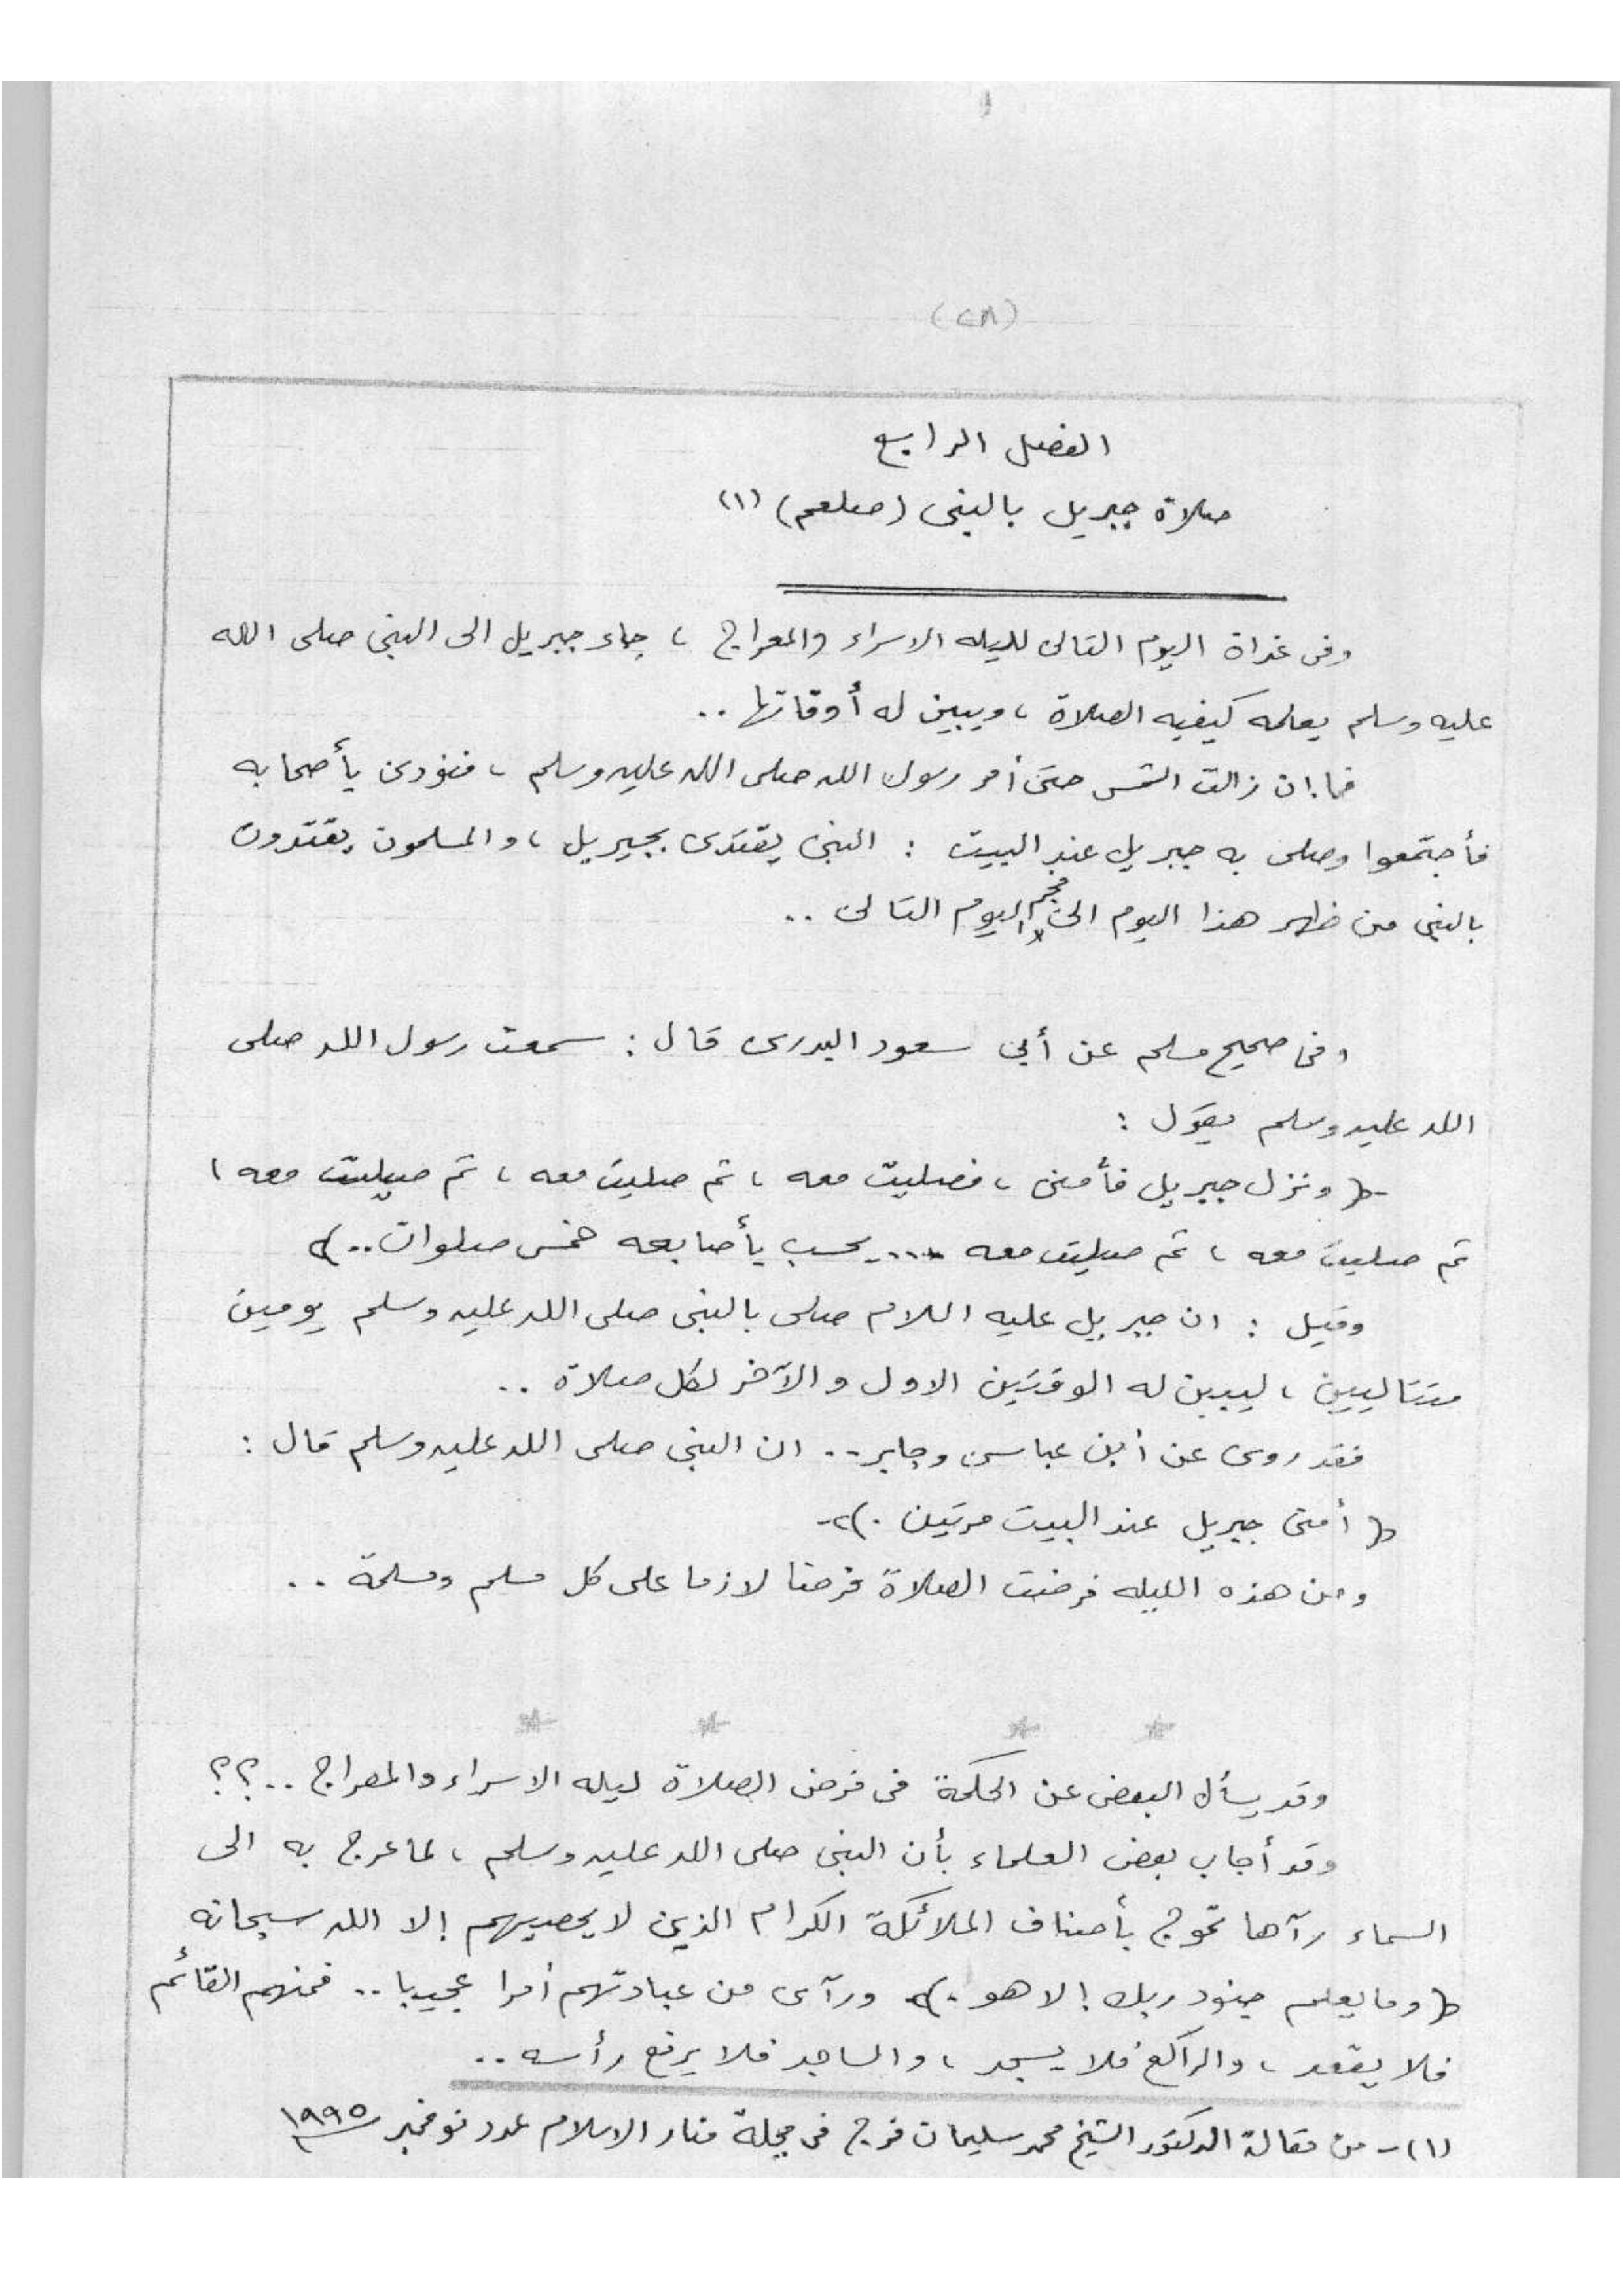 (٢٨)
الفصل الرابع
صلاة جبريل بالنبى (صلعم) (١)
وفى غداة اليوم التالى لليله الاسراء والمعراج ، جاء جبريل الى النبى صلى الله
عليه وسلم يعلمه كيفيه الصلاة ، ويبين له أوقاتها ..
فما ان زالت الشمس حتى أمر رسول الله صلى الله عليه وسلم ، فنودى بأصحابه
فأجتمعوا وصلى به جبريل عند البيت : النبى يقتدى بجبريل ، والمسلمون يقتدون
بالنبى من ظهر هذا اليوم الى فجر اليوم التالى ..
وفى صحيح مسلم عن أبي سعود البدرى قال : سمعت رسول الله صلى
الله عليه وسلم يقول :
( ونزل جبريل فأمنى ، فصليت معه ، ثم صليت معه ، ثم صليت معه ،
ثم صليت معه ، ثم صليت معه .... يحسب بأصابعه خمس صلوات .. )
وقيل : ان جبريل عليه السلام صلى بالنبى صلى الله عليه وسلم يومين
متتاليين ، ليبين له الوقتين الاول والآخر لكل صلاة ..
فقد روى عن أبن عباس وجابر .. ان النبى صلى الله عليه وسلم قال :
( أمنى جبريل عند البيت مرتين . )
ومن هذه الليله فرضت الصلاة فرضا لازما على كل مسلم ومسلمة ..
وقد يسأل البعض عن الحكمة فى فرض الصلاة ليله الاسراء والمعراج ..؟؟
وقد أجاب بعض العلماء بأن النبى صلى الله عليه وسلم ، لما عرج به الى
السماء رآها تموج بأصناف الملائكة الكرام الذين لا يحصيهم إلا الله سبحانه
( وما يعلم جنود ربك إلا هو . ) ورآى من عبادتهم أمرا عجيبا .. فمنهم القائم
فلا يقعد ، والراكع فلا يسجد ، والساجد فلا يرفع رأسه ..
(١) - من مقالة الدكتور الشيخ محمد سليمان فرج فى مجلة منار الاسلام عدد نوفمبر ١٩٩٥